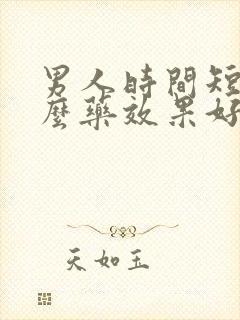 男人時間短
麼藥效果好
天如玉